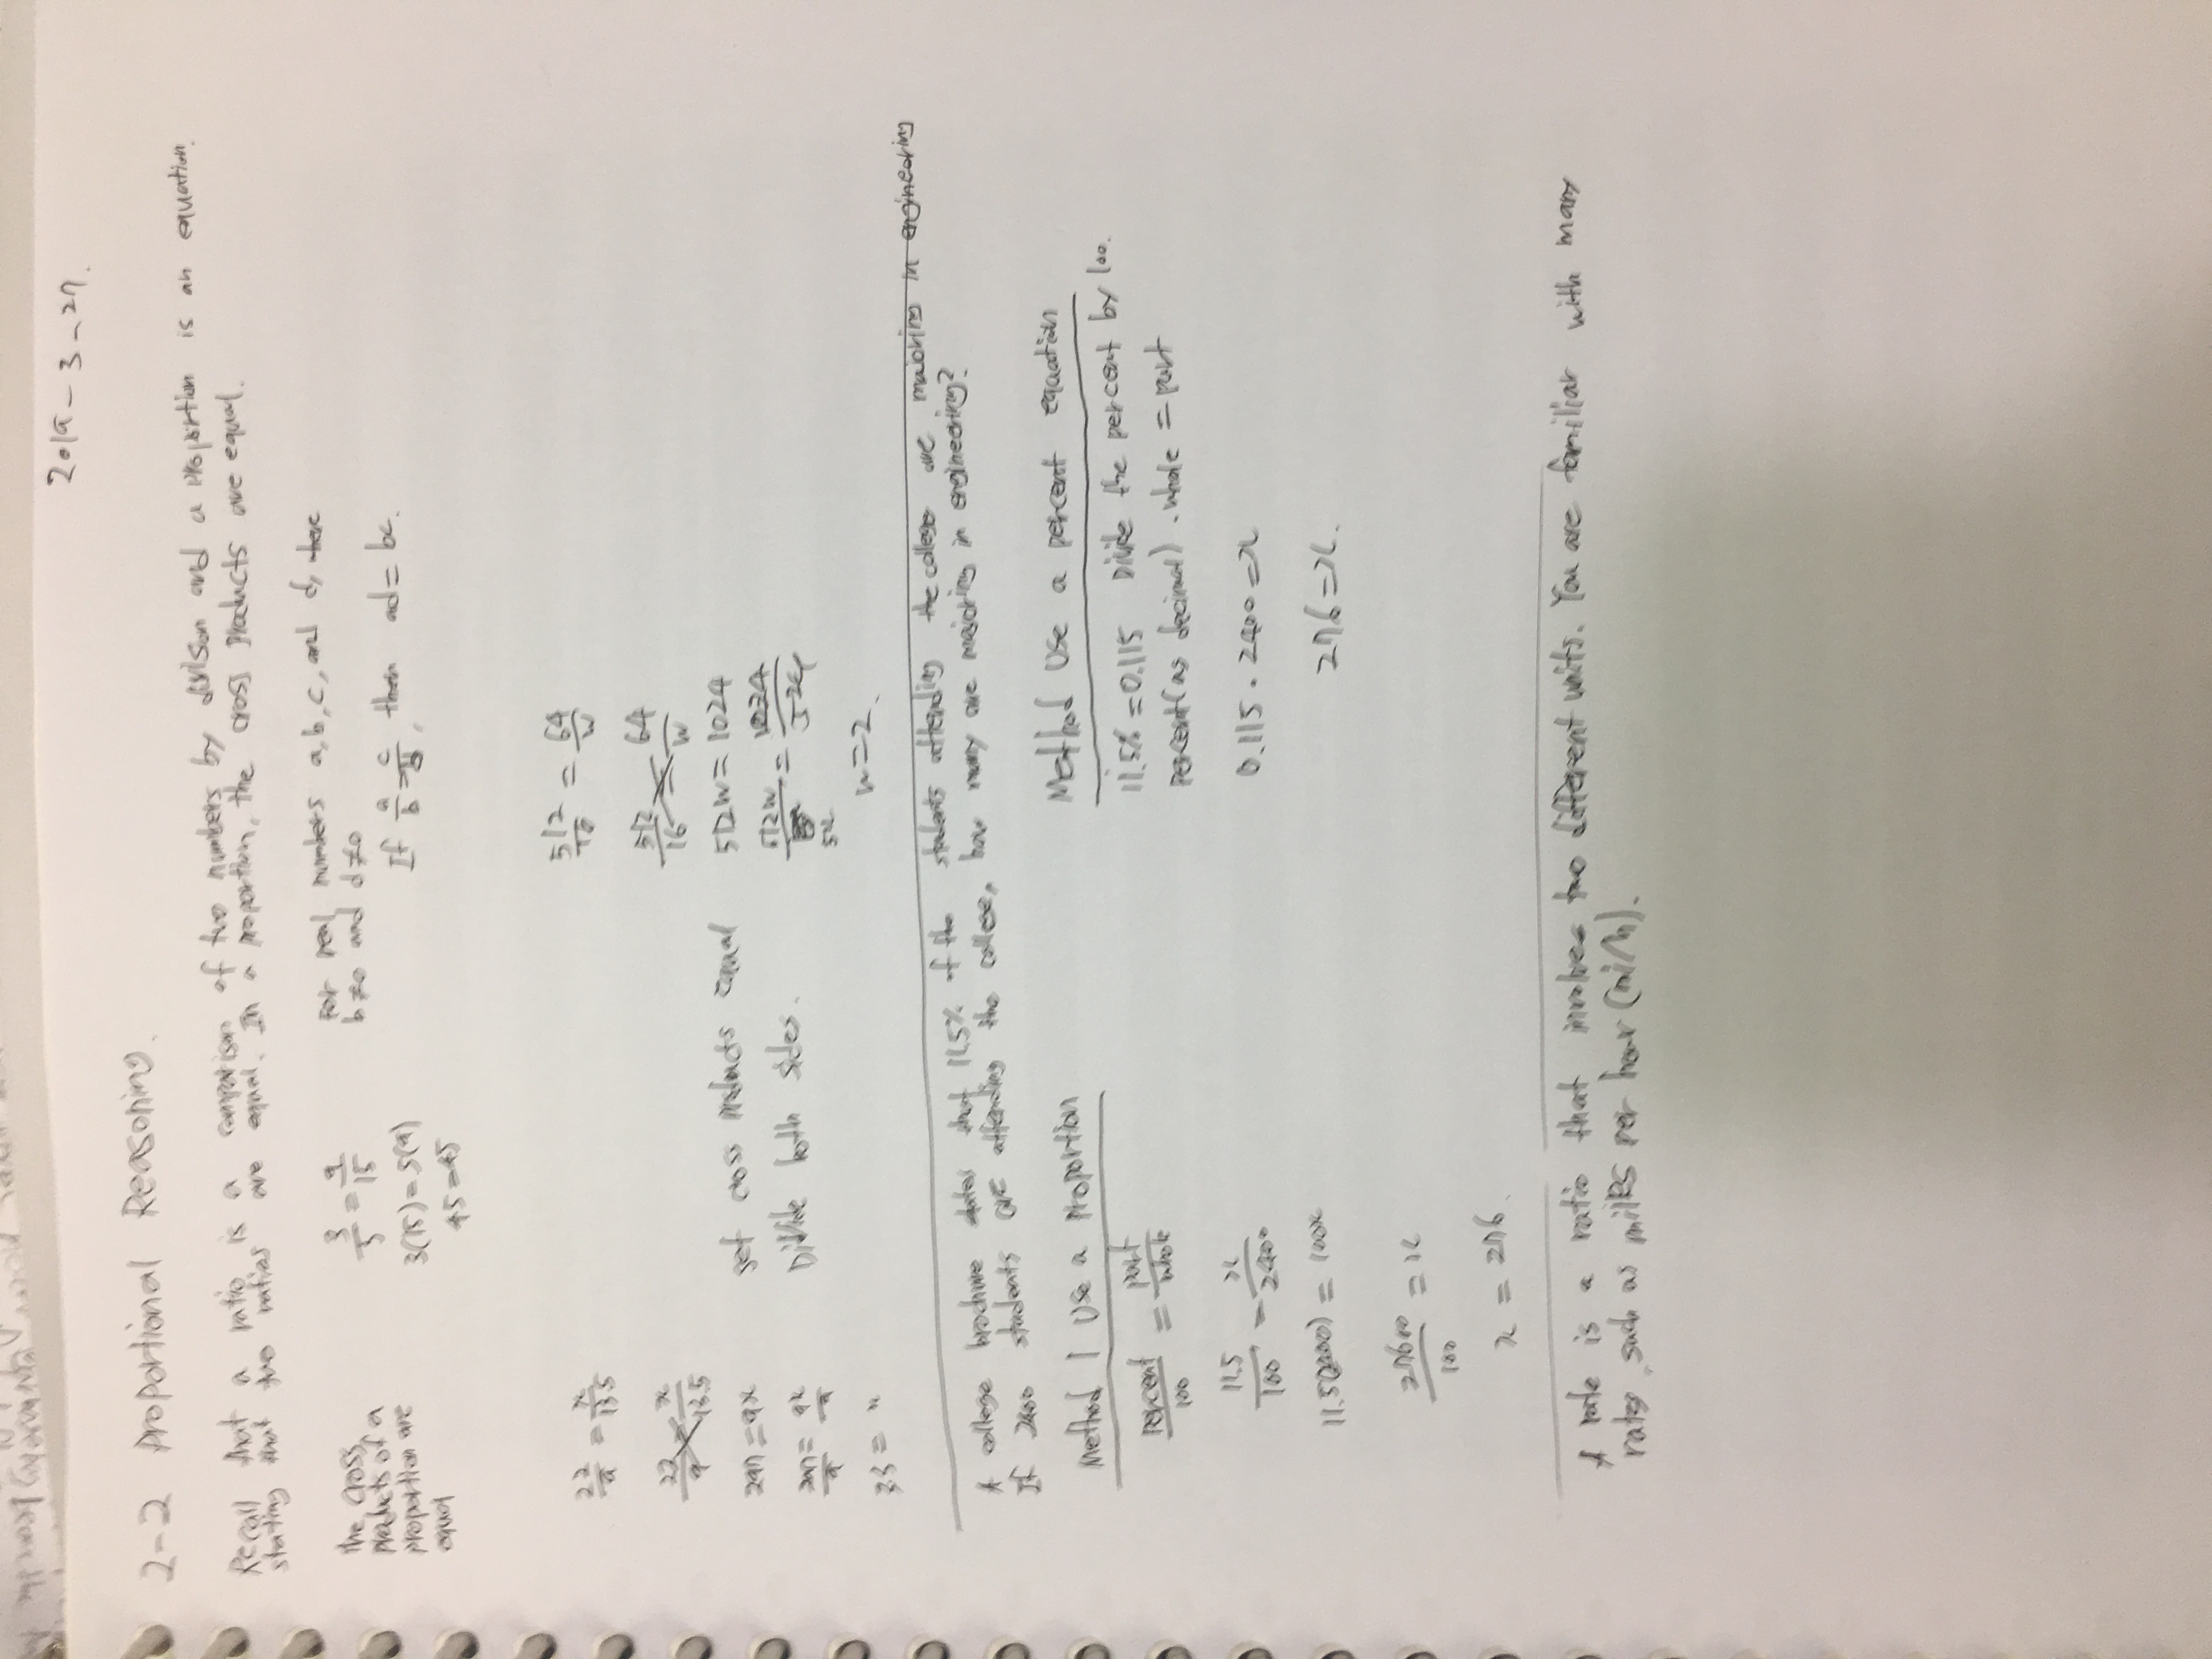 2019-3-27.
2-2 Proportional Reasoning.
Recall that a ratio is a comparison of two numbers by divison and a proportion is an equation.
stating that two ratios are equal. In a proportion, the cross products are equal.
the cross products of a proportion are equal
3/5 = 9/15
3(15)=5(9)
45=45
For real numbers a, b, c, and d, where
b≠0 and d≠0
If a/b = c/d, then ad=bc.
22/9 = x/13.5
22/9 = x/13.5
297=9x
297/9 = 9x/9
33=x
set cross products equal
Divide both sides.
512/16 = 64/w
512/16 = 64/w
512w=1024
512w/512 = 1024/512
w=2.
A college brochure states that 11.5% of the students attending the college are majoring in engineering
If 2400 students are attending the college, how many are majoring in engineering?
Method 1 Use a Proportion
percent/100 = part/whole
11.5/100 = x/2400
11.5(2400) = 100x
27600/100 = x
x = 276.
Method Use a percent equation
11.5%=0.115 Divide the percent by 100.
percent(as decimal).whole=part
0.115.2400=x
276=x.
A rate is a ratio that involves two different units. You are familiar with many
rates, such as miles per hour (mi/h).